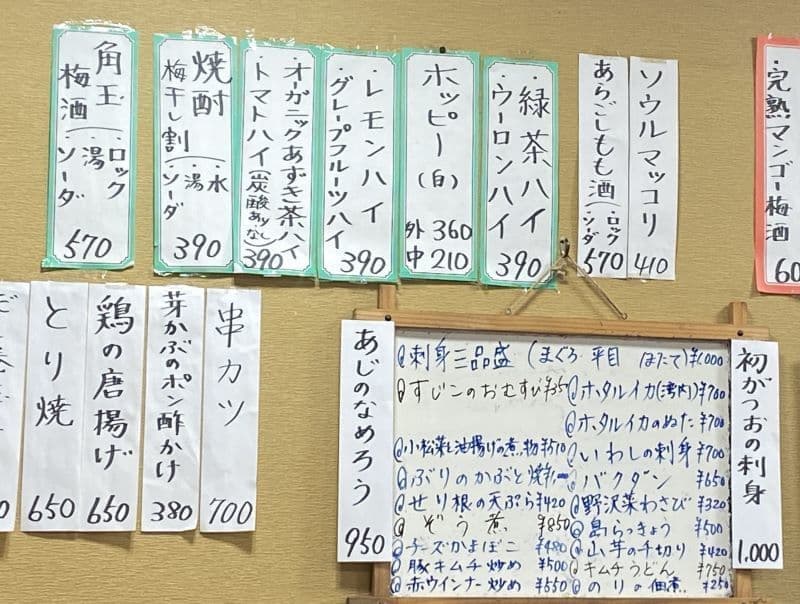 角玉
梅酒（ロック・湯・ソーダ
570
焼酎
梅干し割（水・湯・ソーダ
390
・オーガニックあずき茶ハイ
・トマトハイ（炭酸あり・なし）
390
・レモンハイ
・グレープフルーツハイ
390
ホッピー（白）
外 360
中 210
・緑茶ハイ
・ウーロンハイ
390
あらごしもも酒（・ロック・ソーダ
570
ソウルマッコリ
410
・完熟マンゴー梅酒
とり焼
650
鶏の唐揚げ
650
芽かぶのポン酢かけ
380
串カツ
700
あじのなめろう
950
刺身三品盛（まぐろ 平目 ほたて）¥1,000
すじこのおむすび
小松菜と油揚げの煮物 ¥570
ぶりのかぶと焼
せり根の天ぷら ¥420
ぞう煮 ¥850
チーズかまぼこ ¥480
豚キムチ炒め ¥500
赤ウインナー炒め ¥550
ホタルイカ(湾内) ¥700
ホタルイカのぬた ¥700
いわしの刺身 ¥700
バクダン ¥650
野沢菜わさび ¥320
島らっきょう ¥500
山芋の千切り ¥420
キムチうどん ¥750
のりの佃煮 ¥250
初がつおの刺身
1,000